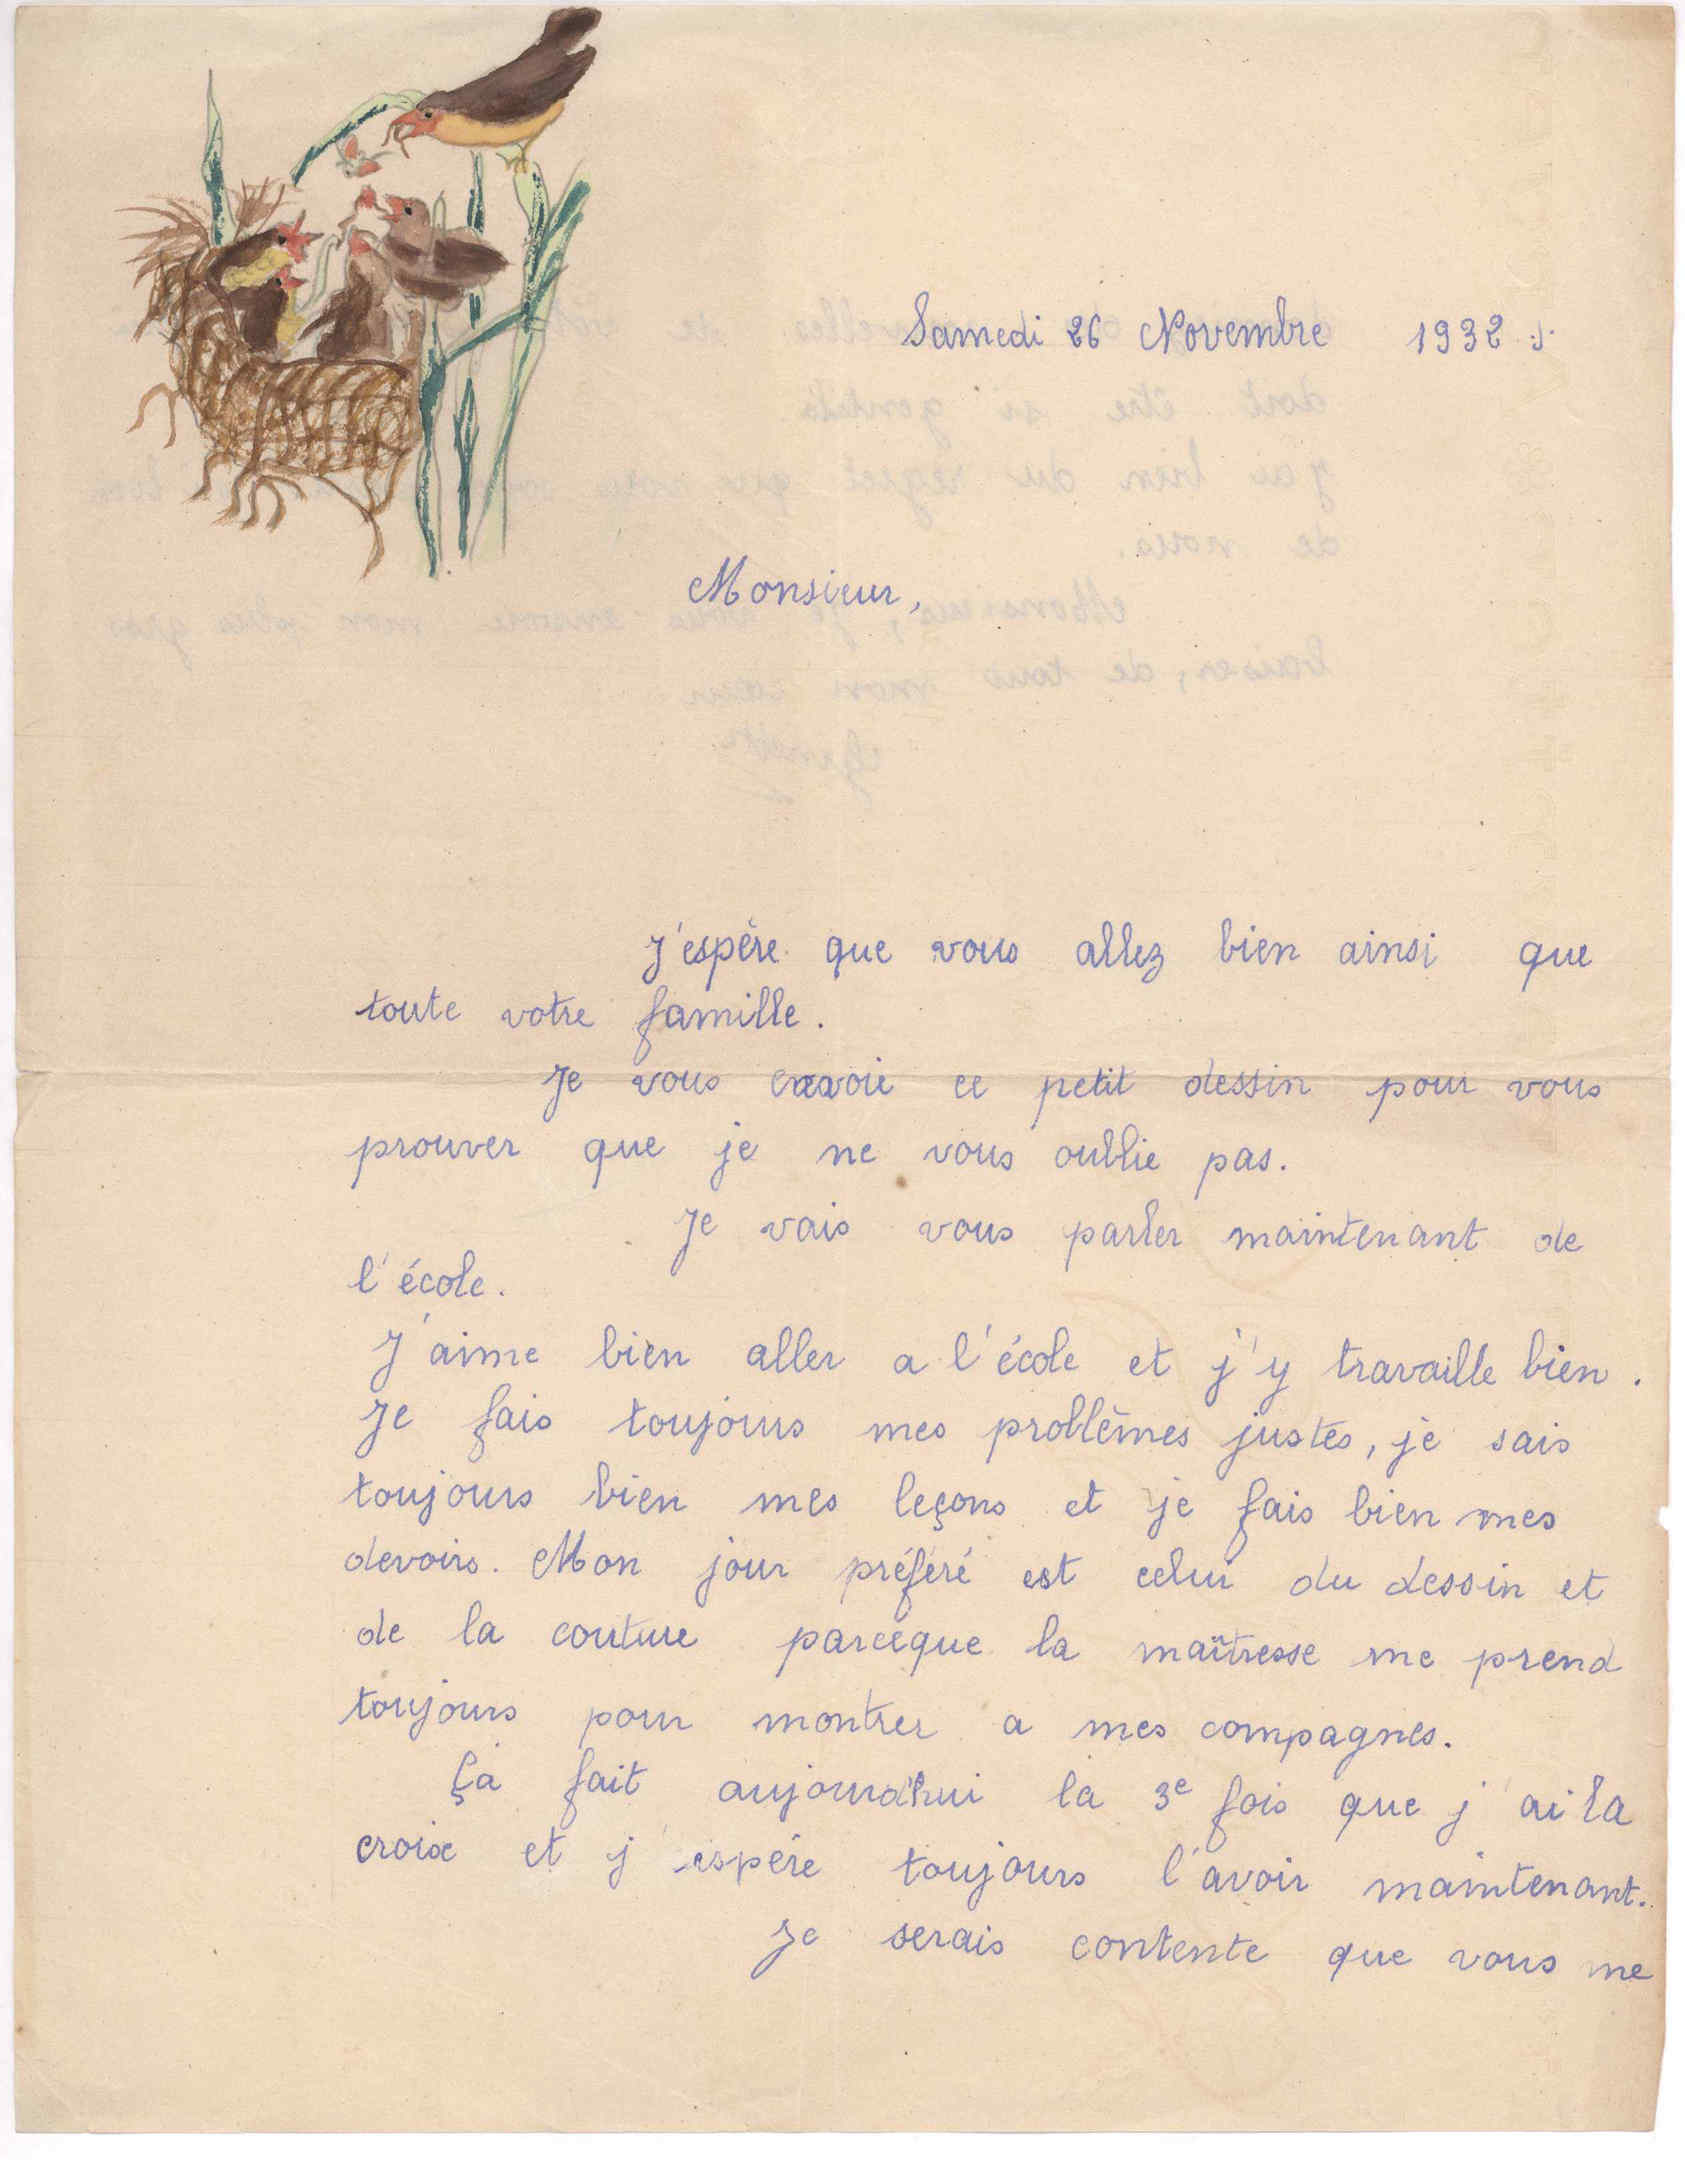 Samedi 26 Novembre 1932.
Monsieur,
J'espère que vous allez bien ainsi que
toute votre famille.
Je vous envoie ce petit dessin pour vous
prouver que je ne vous oublie pas.
Je vais vous parler maintenant de
l'école.
J'aime bien aller a l'école et j'y travaille bien.
Je fais toujours mes problèmes justes, je sais
toujours bien mes leçons et je fais bien mes
devoirs. Mon jour préféré est celui du dessin et
de la couture parceque la maîtresse me prend
toujours pour montrer a mes compagnes.
Ça fait aujourd'hui la 3e fois que j'ai la
croix et j'espère toujours l'avoir maintenant.
Je serais contente que vous me